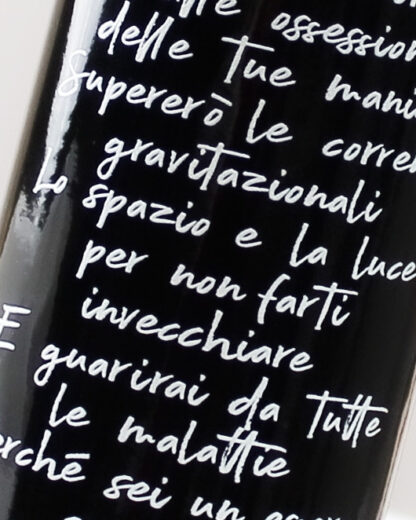 alle ossession
delle Tue mani
Supererò le corren
gravitazionali
Lo spazio e la luce
per non farti
invecchiare
E guarirai da Tutte
le malattie
erché sei un